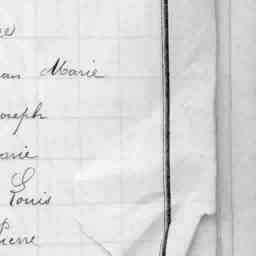 an Marie
oseph
arie
Louis
ierre